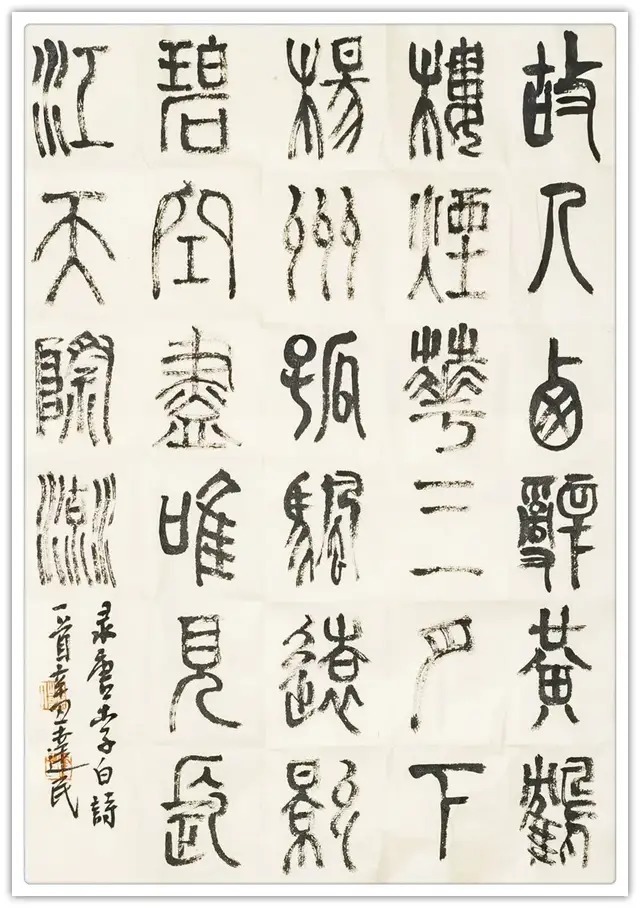 故人西辭黃鶴
樓煙華三月下
楊州孤颿遠影
碧空盡唯見長
江天際流
录唐李白詩
一首辛丑民